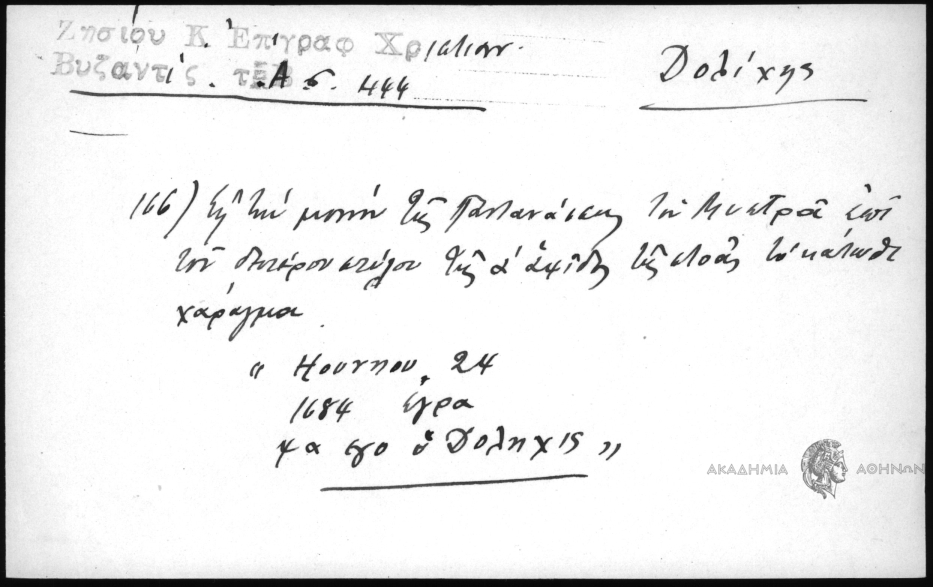 Ζησίου Κ. Ἐπιγραφ Χριστιαν.
Βυζαντίς. τ. Α σ. 444
Δολίχης
166) Εἰς τὴν μονὴν τῆς Παντανάσσης τοῦ Μυστρᾶ ἐπὶ
τοῦ δευτέρου στύλου τῆς ά ἁψῖδος τῆς στοᾶς τὸ κάτωθι
χάραγμα
" Ηουνηου 24
1684 ἐγρα
ψα εγο ὁ Δοληχις "
ΑΚΑΔΗΜΙΑ ΑΘΗΝΩΝ